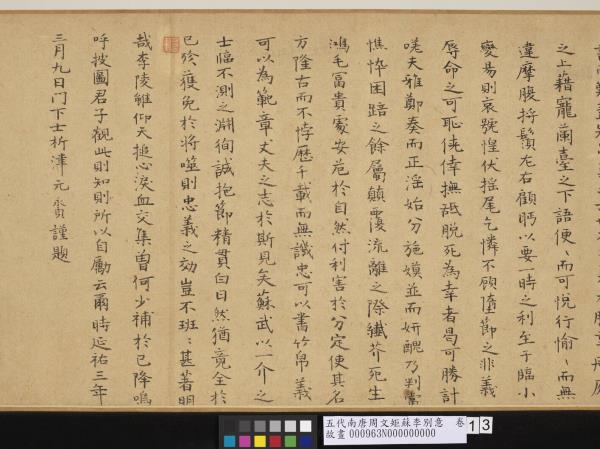 之上藉寵蘭臺之下語便〻而可悅行愉〻而無
違摩腹捋鬚左右顧眄以要一時之利至于臨小
變易則哀號惶伏搖尾乞憐不顧墮節之非義
辱命之可恥僥倖撫砥脫死為幸者曷可勝計
嗟夫雅鄭奏而正淫始分施嫫並而妍醜乃判
憔悴困踣之餘屬顛覆流離之際纖芥死生
鴻毛冨貴處安危於自然付利害於分定使其名
方隆古而不悖歷千載而無譏忠可以書竹帛義
可以為範章丈夫之志於斯見矣蘇武以一介之
士臨不測之淵徇誠抱節精貫白日然猶竟全於
已殆獲免於將噬則忠義之効豈不班〻甚著明
哉李陵雖仰天搥心淚血交集曽何少補於已降嗚
呼披圖君子觀此則知所以自勵云爾時延祐三年
三月九日門下士析津元賡謹題
五代南唐周文矩蘇李別意 卷
故畫 000963N000000000
13